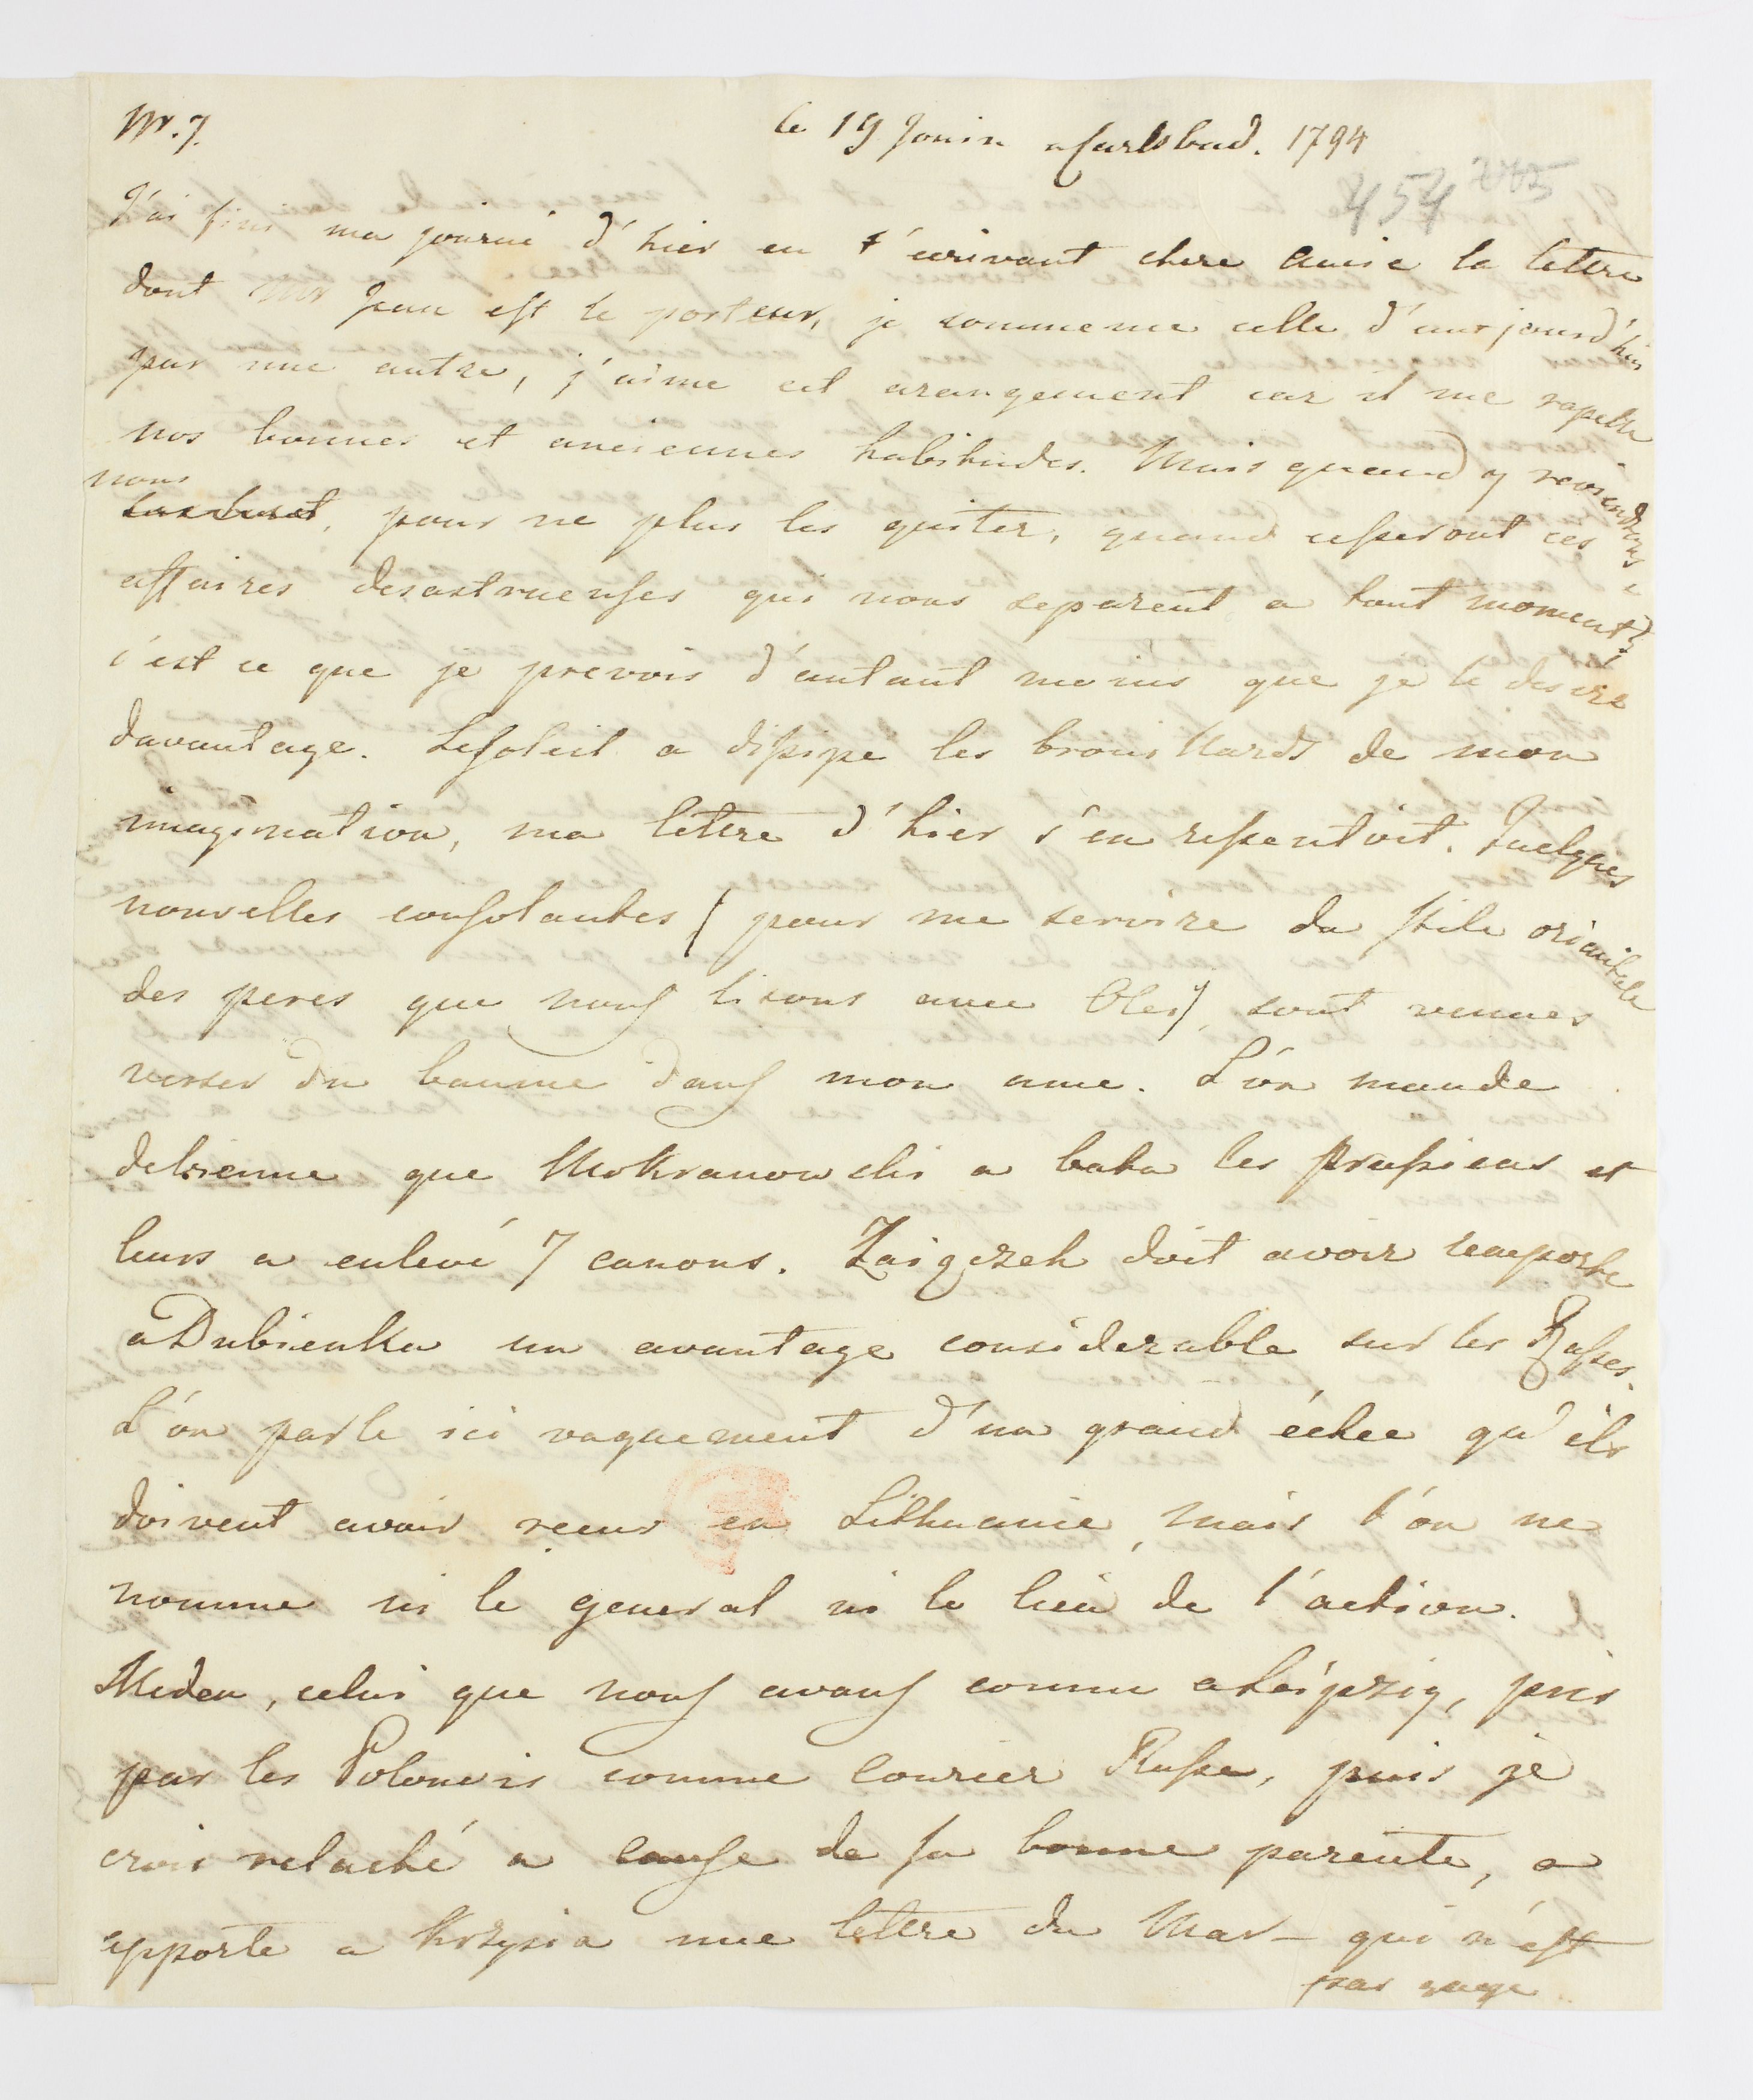 Nr. 7. le 19 Jouin a Carlsbad. 1794
454
J'ai fini ma journé d'hier en t'ecrivant chere Amie la lettre
dont Mr Jean est le porteur, je commence celle d'aurjourd'hui
par une autre, j'aime cet arangement car il me rapelle
nos bonnes et anciennes habitudes. Mais quand y reviendrons
nous
pour ne plus les quiter, quand cesseront ces
affaires desastrueuses qui nous separent a tout moment?
c'est ce que je prevois d'autant moins que je le desire
davantage. Le soleil a dissipe les brouillards de mon
imagination, ma lettre d'hier s'en ressentoit. Quelques
nouvelles consolantes (pour me servire du stile orientale
des peres que nous lisons avec Oles) sont venues
verser du baume dans mon ame. L'on mande
de Vienne que Mokranowskis a batu les Prussiens et
leurs a enlevé 7 canons. Zaigczek doit avoir remporte
a Dubienka un avantage considerable sur les Russes.
L'on parle ici vaguement d'un grand échec qu'ils
doivent avoir recus en Lithuanie, mais l'on ne
nomme ni le general ni le lieu de l'action.
Meden, celui que nous avons connu a Leipzig, pris
par les Polonois comme Courier Russe, puis je
crois relaché a cause de sa bonne parente, a
apporte a Krzysia une lettre du Mar– qui n'est
pas gage